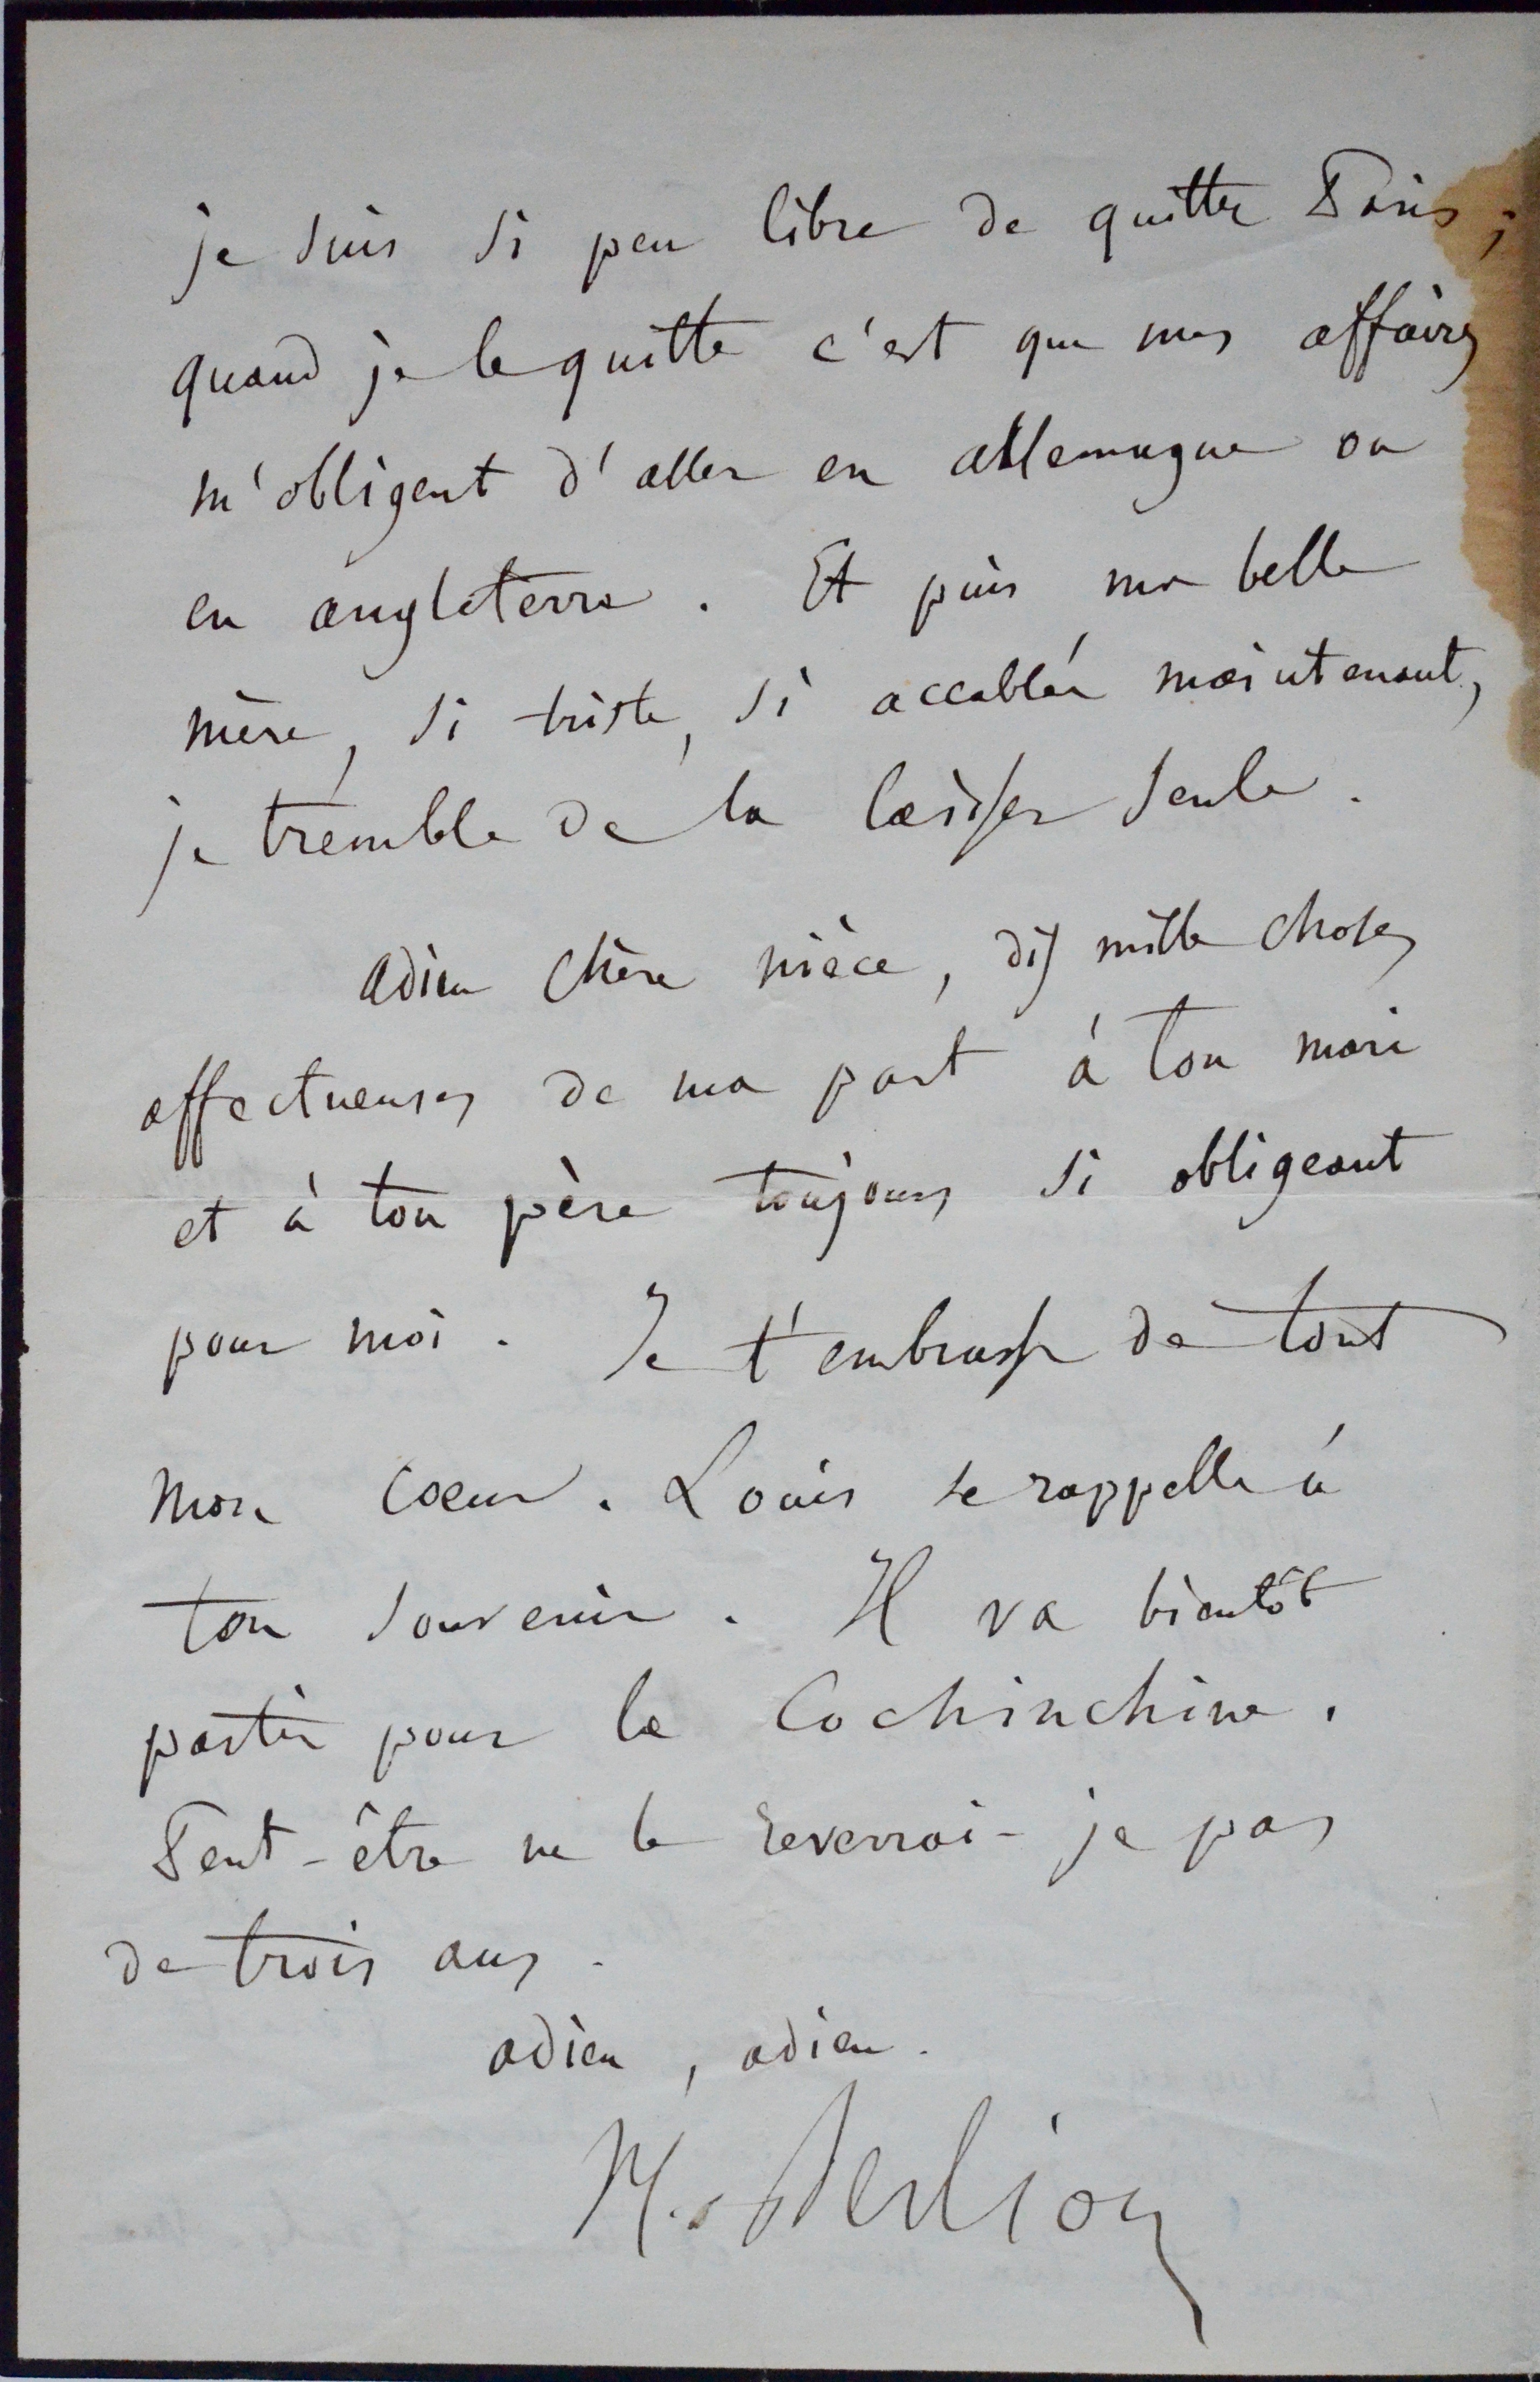 je suis si peu libre de quitter Paris ;
quand je le quitte c'est que mes affaires
m'obligent d'aller en allemagne ou
en angleterre . Et puis ma belle
mère, si triste, si accablée maintenant,
je tremble de la laisser seule .
adieu chère nièce, dis mille choses
affectueuses de ma part à ton mari
et à ton père toujours si obligeant
pour moi . Je t'embrasse de tout
mon coeur . Louis se rappelle à
ton souvenir . Il va bientôt
partir pour la Cochinchine .
Peut-être ne le reverrai-je pas
de trois ans .
adieu, adieu .
H. Berlioz